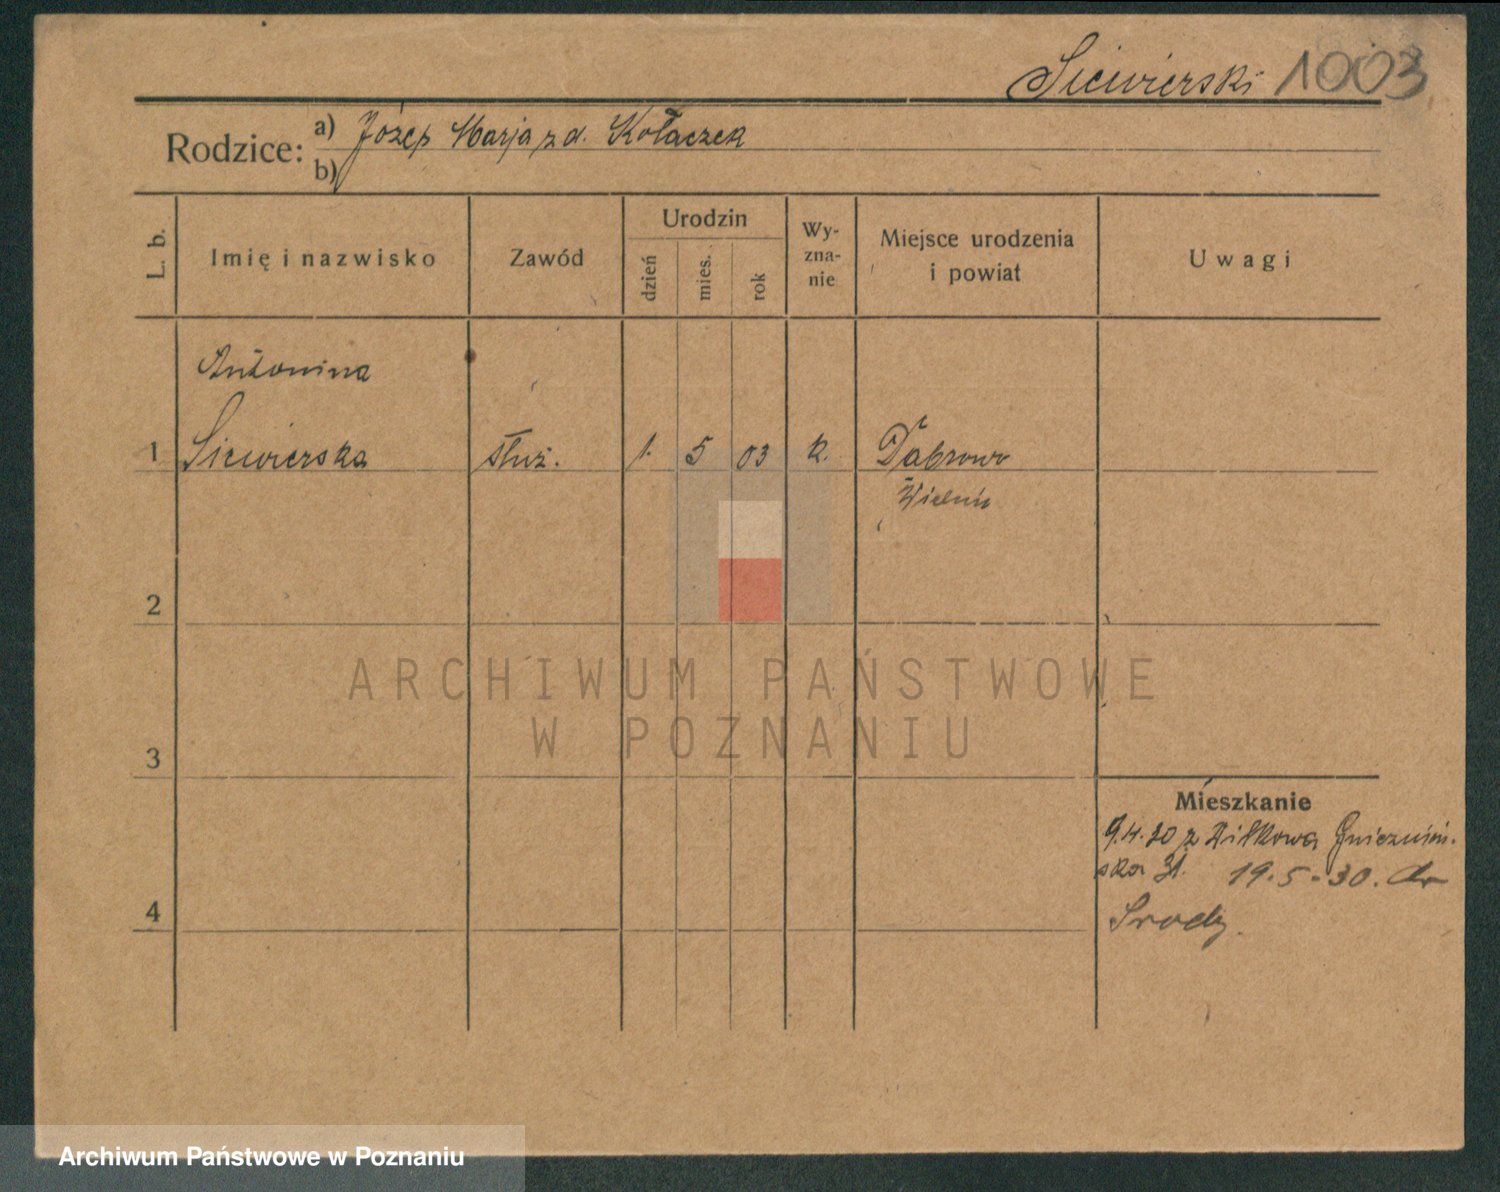 Siewierski 1003
Rodzice: a) Józef Marja z d. Kołaczek
b)
L. b.
Imię i nazwisko
Zawód
Urodzin
dzień
mies.
rok
Wy-
zna-
nie
Miejsce urodzenia
i powiat
Uwagi
Antonina
1 Siewierska służ. 1. 5 03 k. Dąbrowa
Wieluń
2
3
4
Mieszkanie
9.4.30 z Gnieznień-
ska 31. 19.5-30. do
Środy.
ARCHIWUM PAŃSTWOWE
W POZNANIU
Archiwum Państwowe w Poznaniu